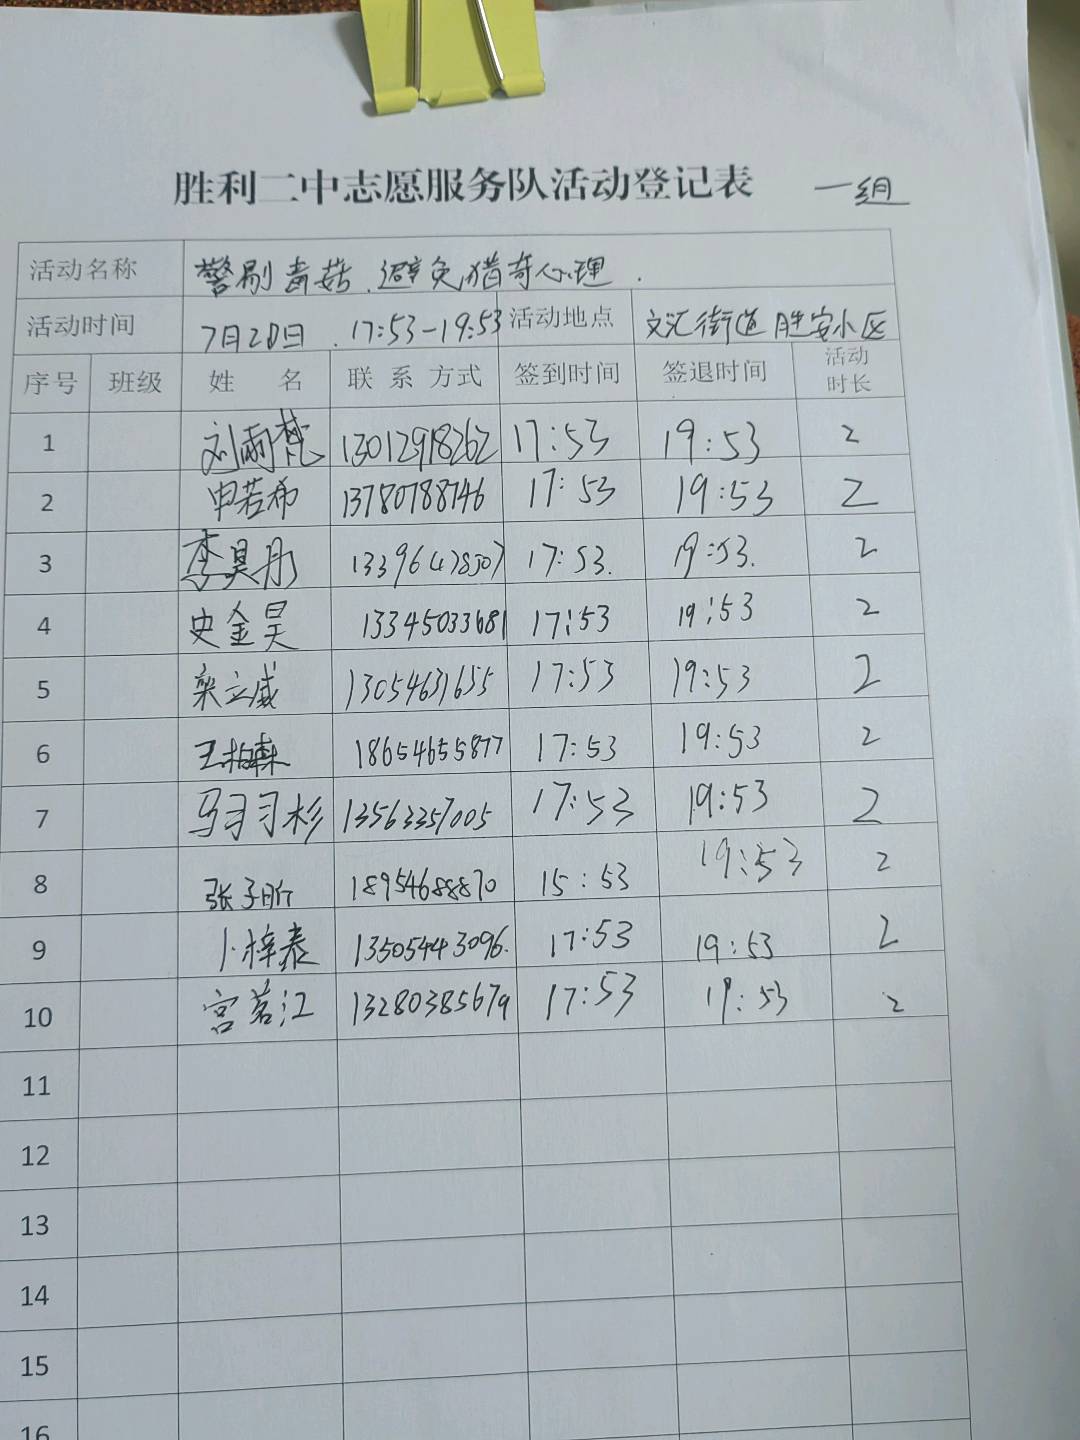 胜利二中志愿服务队活动登记表 一组
活动名称 警剔毒菇、避免猎奇心理.
活动时间 7月20日. 17:53-19:53 活动地点 文汇街道 胜安小区
序号 班级 姓 名 联系方式 签到时间 签退时间 活动时长
1 刘雨梵 13012918262 17:53 19:53 2
2 申若希 13780788746 17:53 19:53 2
3 李昊彤 13396478507 17:53. 19:53. 2
4 史金昊 13345033681 17:53 19:53 2
5 栾立威 13054631655 17:53 19:53 2
6 王柏霖 18654655877 17:53 19:53 2
7 马习习杉 13563357005 17:53 19:53 2
8 张子昕 18954688870 15:53 19:53 2
9 卜梓泰 13505443096. 17:53 19:53 2
10 宫茗江 13280385679 17:53 19:53 2
11
12
13
14
15
16